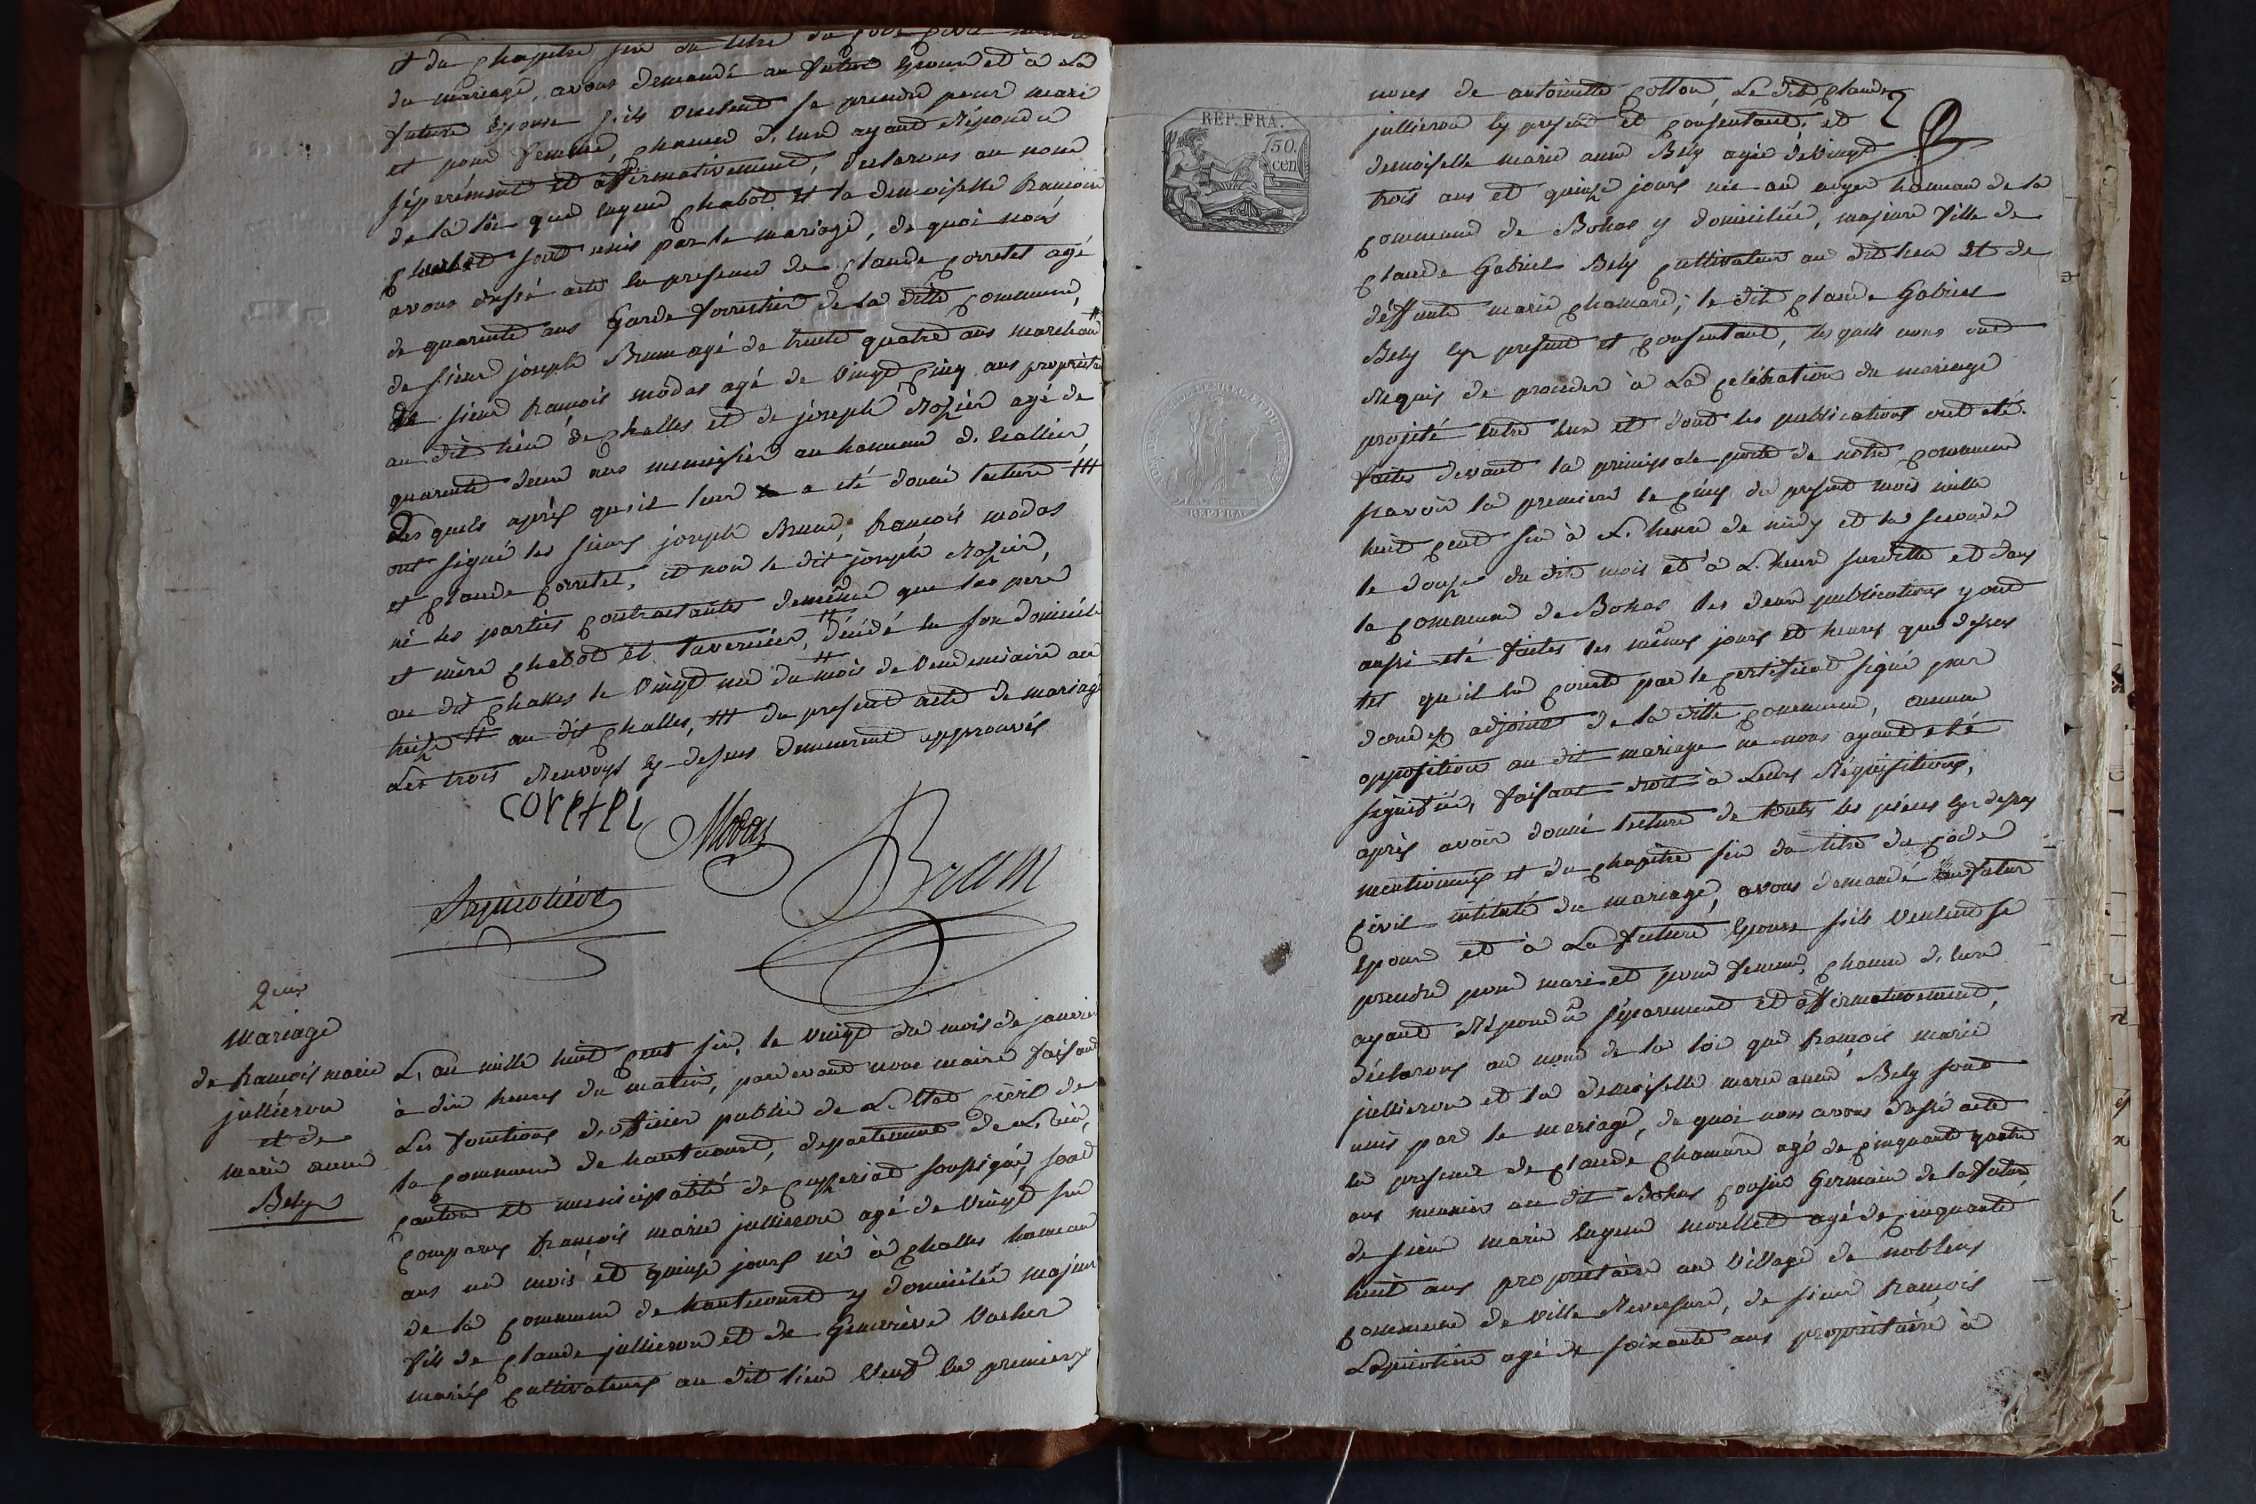 et du chapitre six du titre du code civil
du mariage, avons demandé au futur epoux et à la
future epouse s'ils veulent se prendre pour mari
et pour femme, chacun d'eux ayant répondu
séparément et affirmativement, declarons au nom
de la loi que eugene chabod et la demoiselle francoise
sont unis par le mariage, de quoi nous
avons dressé acte en presence de claude corretel agé
de quarante ans Garde forrestier de la ditte commune,
de sieur joseph Brun agé de trente quatre ans marchand #
de sieur francois modas agé de vingt cinq ans propriétaire
au dit lieu de challes et de joseph Rozier agé de
quarante deux ans menuisier au hameau d'
Les quels après qu'il leur a été donné lecture ###
ont signé les sieurs joseph Brun, francois modas
et claude corretel, et non le dit joseph Rozier,
ni les parties contractantes de même que les pere
et mere chabod et tavernier, # décédé en son domicile
au dit challes le vingt un du mois de vendemiaire an
treize ## au dit challes, ### du present acte de mariage
Les trois Renvoys cy dessus demeurent approuvés
corretel
Modas
Brun
Lapicotiere
2eme
Mariage
de francois marie
jullieron
et de
marie anne
Bely
L'an mille huit cent six, le vingt du mois de janvier
à dix heures du matin, pardevant nous maire faisant
Les fonctions d'officier public de L'Etat civil de
la commune de hautecourt, departement de L'ain,
canton et municipalité de ceyzeriat soussigné, sont
comparus francois marie jullieron agé de vingt six
ans un mois et quinze jours né à challes hameau
de la commune de hautecourt y domicilié majeur
fils de claude jullieron et de Genevieve Vacher
mariés cultivateurs au dit lieu veuf en premieres
2
REP. FRA.
50.
cen
REP. FRA.
noces de antoinette cotton, Le dit claude
jullieron cy present et consentant, et
demoiselle marie anne Bely agée de vingt
trois ans et quinze jours née au hameau de la
commune de Bohas y domiciliée, majeure fille de
claude Gabriel Bely cultivateur au dit lieu et de
déffunte marie chamard, le dit claude Gabriel
Bely cy present et consentant, les quels nous ont
Requis de proceder à La celebration du mariage
projeté entre eux et dont les publications ont eté
faites devant la principale porte de notre commune
scavoir la premiere le cinq du present mois mille
huit cent six à L'heure de midy et la seconde
le douze du dit mois et à L'heure susditte et dans
la commune de Bohas les deux publications y ont
aussi eté faites les mêmes jours et heures que dessus
tel qu'il en conste par le certificat signé par
adjoint de la ditte commune, aucune
opposition au dit mariage ne nous ayant eté
signifiée, faisant droit à Leurs Réquisitions,
après avoir donné lecture de toutes les pieces cy dessus
mentionnées et du chapitre six du titre du code
civil intitulé du mariage, avons demandé au futur
epoux et à La future epouse s'ils veulent se
prendre pour mari et pour femme, chacun d'eux
ayant Répondu séparement et affirmativement,
déclarons au nom de la loi que francois marie
jullieron et la demoiselle marie anne Bely sont
unis par le mariage, de quoi nous avons dressé acte
en presence de claude chamard agé de cinquante quatre
ans meunier au dit Bohas cousin Germain de la future,
de sieur marie eugene moullet agé de cinquante
huit ans propriétaire au village de noblens
commune de ville Reversure, de sieur francois
Lapicotiere agé de soixante ans propriétaire à